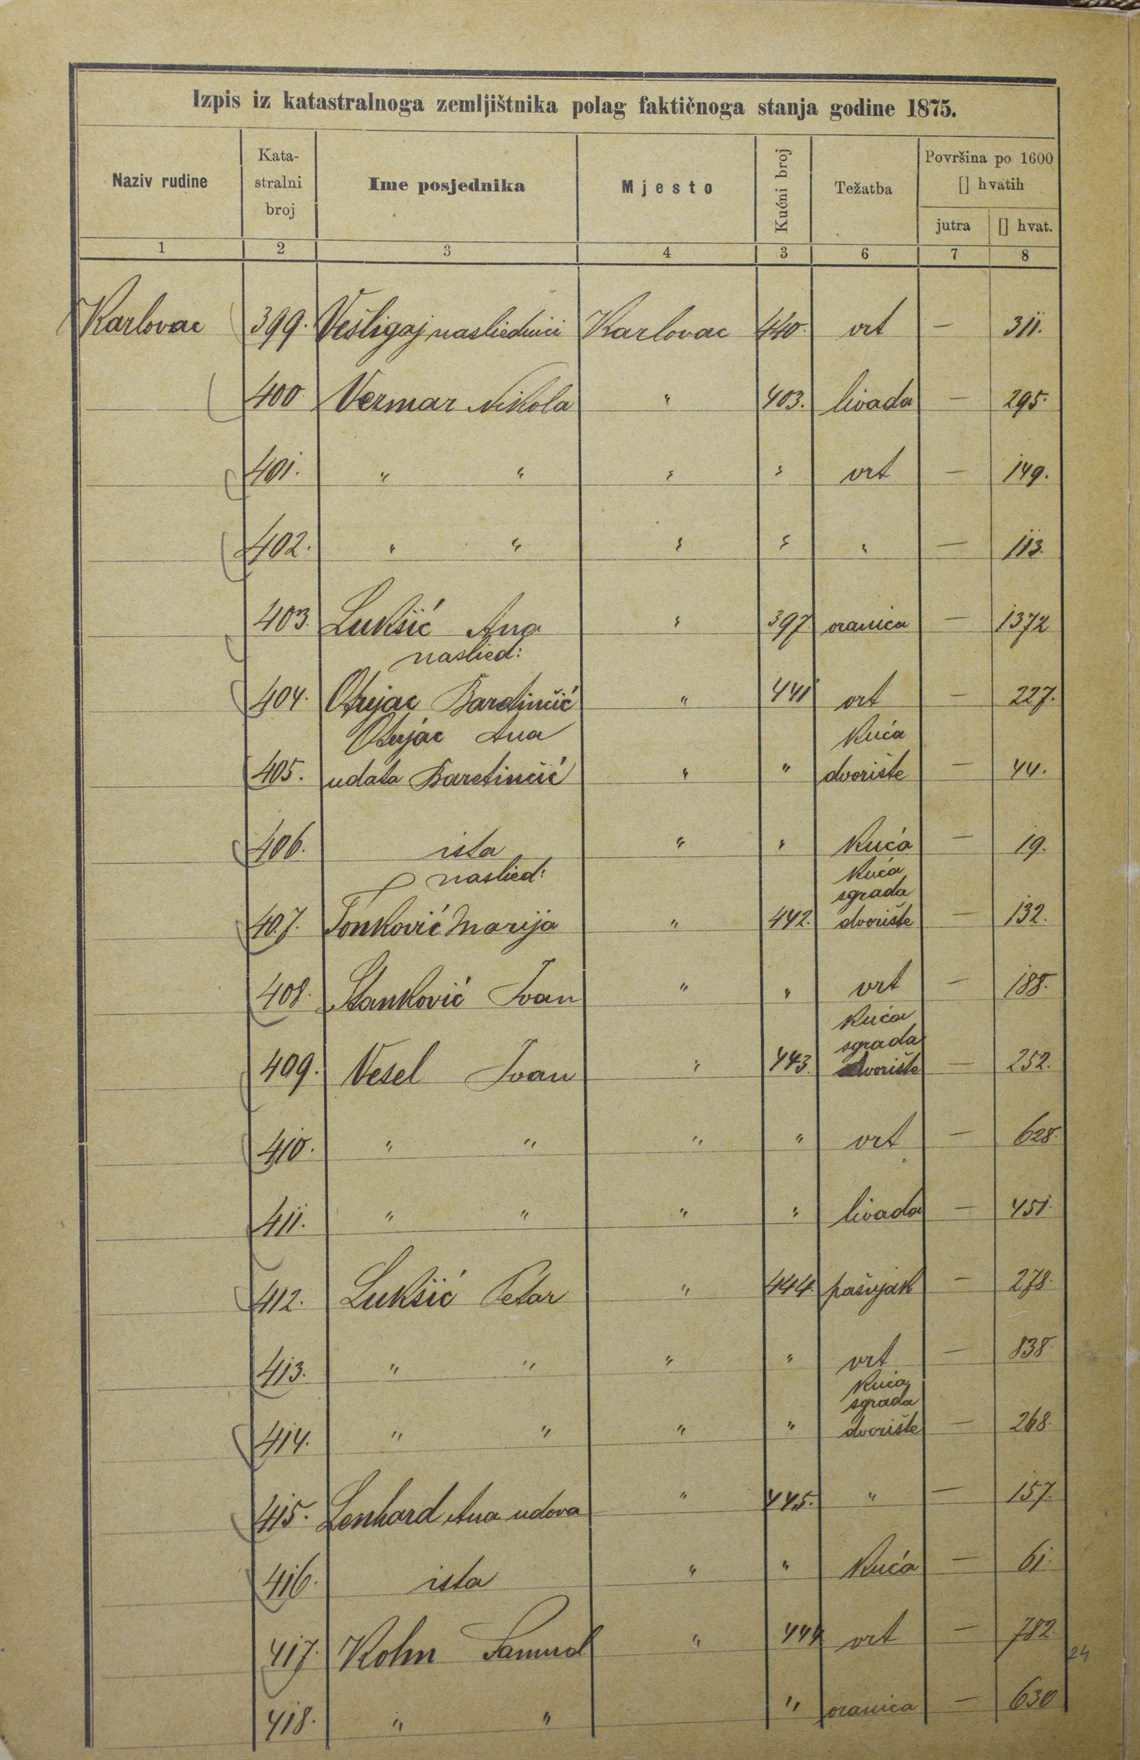 Izpis iz katastralnoga zemljištnika polag faktičnoga stanja godine 1875.
Naziv rudine Kata- stralni broj Ime posjednika Mjesto Kućni broj Težatba Površina po 1600 [] hvatih
jutra [] hvat.
1 2 3 4 3 6 7 8
Karlovac 399. nasliednici Karlovac 440. vrt — 311.
400 Vezmar Nikola " 403. livada — 295.
401. " " " " vrt — 149.
402. " " " " " — 113.
403. Lukšić Ana " 397 oranica — 1372
naslied:
404. Baretinčić " 441 vrt — 227.
Ana kuća
405. udata Baretinčić " " dvorište — 44.
406. ista " " kuća — 19.
naslied: kuća
sgrada
407. Tonković Marija " 442. dvorište — 132.
408. Stanković Ivan " " vrt — 188.
kuća
sgrada
409. Vesel Ivan " 443. dvorište — 252.
410. " " " " vrt — 628.
411. " " " " livada — 451.
412. Lukšić Petar " 444. pašnjak — 278.
413. " " " " vrt — 838.
kuća
sgrada
414. " " " " dvorište — 268.
415. Lenhard Ana udova " 445. " — 157.
416. ista " " kuća — 61.
417. Kohn Samuel " 444 vrt — 782.
24
418. " " " oranica — 630